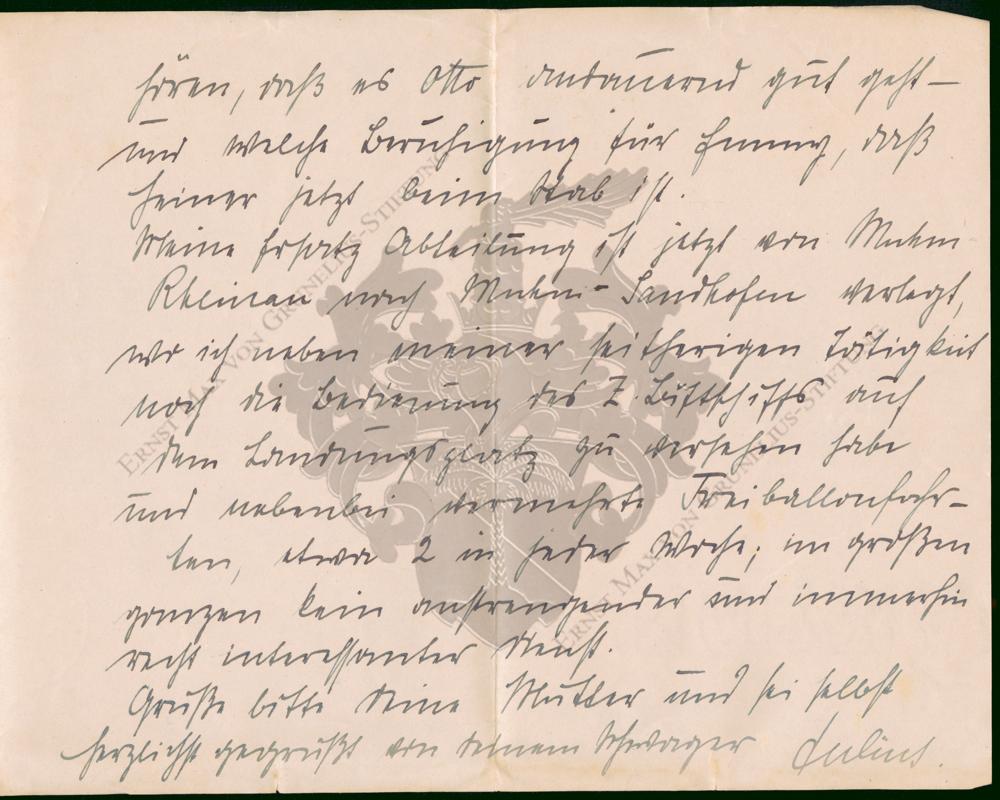 hören, daß es Otto andauernd gut geht –
und welche Beruhigung für Emmy, daß
Heiner jetzt beim Stab ist.
Meine Ersatz Abteilung ist jetzt von
Rheinau nach Sandhofen verlegt,
wo ich neben meiner seitherigen Tätigkeit
noch die Bedienung des Z. Luftschiffs auf
dem Landungsplatz zu versehen habe
und nebenbei vermehrte Freiballonfahr-
ten, etwa 2 in jeder Woche; im großen
ganzen kein anstrengender und immerhin
recht interessanter Dienst.
Grüße bitte Deine Mutter und sei selbst
herzlichst gegrüßt von Deinem Schwager Julius.
ERNST MAX VON GRUNELIUS-STIFTUNG
ERNST MAX VON GRUNELIUS-STIFTUNG